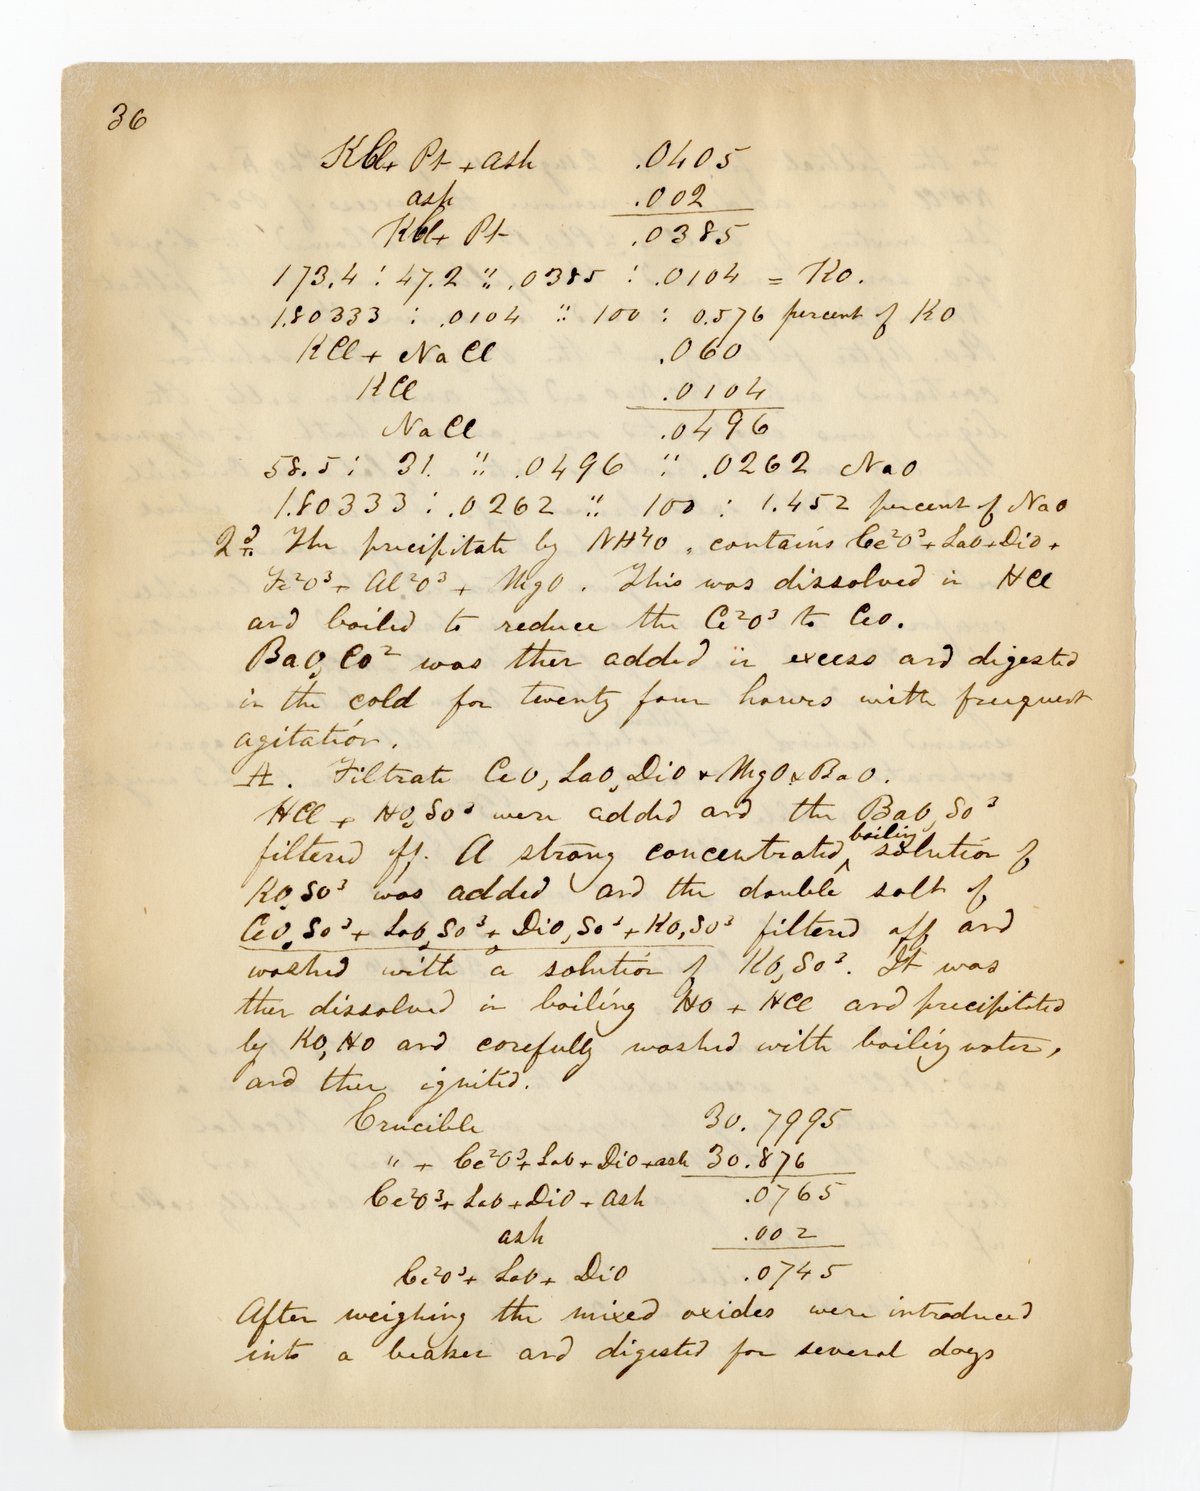 36
KCl + Pt + ash .0405
ash .002
KCl + Pt .0385
173.4 : 47.2 :: .0385 : .0104 = KO.
1.80333 : .0104 :: 100 : 0.576 percent of KO
KCl + NaCl .060
KCl .0104
NaCl .0496
58.5 : 31. :: .0496 :: .0262 NaO
1.80333 : .0262 :: 100 : 1.452 percent of NaO
2d. The precipitate by NH4O, contains Ce2O3 + LaO + DiO +
Fe2O3 + Al2O3 + MgO. This was dissolved in HCl
and boiled to reduce the Ce2O3 to CeO.
BaO, CO2 was then added in excess and digested
in the cold for twenty four hours with frequent
agitation.
A. Filtrate CeO, LaO, DiO + MgO + BaO.
HCl + HO, SO3 were added and the BaO, SO3
filtered off. A strong concentrated boiling solution of
KO, SO3 was added and the double salt of
CeO, SO3 + LaO, SO3 + DiO, SO3 + KO, SO3 filtered off and
washed with a solution of KO, SO3. It was
then dissolved in boiling HO + HCl and precipitated
by KO, HO and carefully washed with boiling water,
and then ignited.
Crucible 30.7995
" + Ce2O3 + LaO + DiO + ash 30.876
Ce2O3 + LaO + DiO + ash .0765
ash .002
Ce2O3 + LaO + DiO .0745
After weighing the mixed oxides were introduced
into a beaker and digested for several days